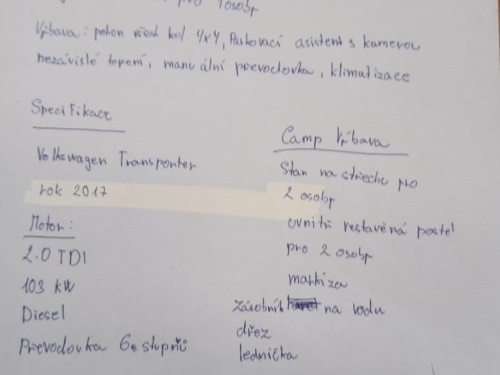 pro 1 osobp
Výbava: pohon všech kol 4x4, Parkovací asistent s kamerou
nezávislé topení, manuální převodovka, klimatizace
Specifikace
Volkswagen Transporter
rok 2017
Motor:
2.0 TDI
103 kW
Diesel
Převodovka 6. stupňů
Camp Výbava
Stan na střeche pro
2 osobp
uvnitř restavěná postel
pro 2 osobp
markíza
Zásobník na vodu
dřez
lednička